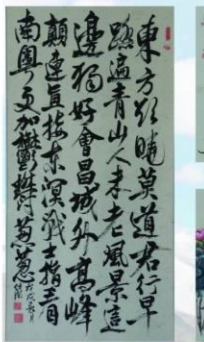 東方欲曉莫道君行早
踏遍青山人未老風景這
邊獨好會昌城外高峰
顛連直接東溟戰士指看
南粵更加鬱鬱葱葱